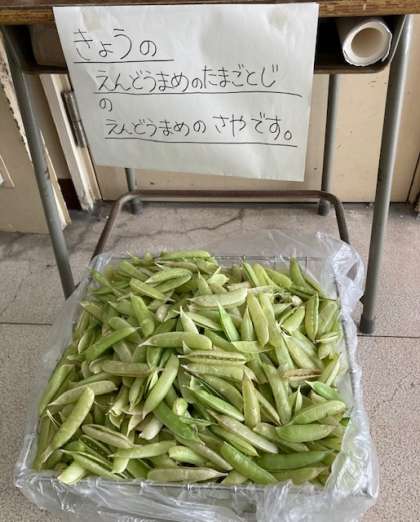 きょうの
えんどうまめのたまごとじ
の
えんどうまめの さやです。